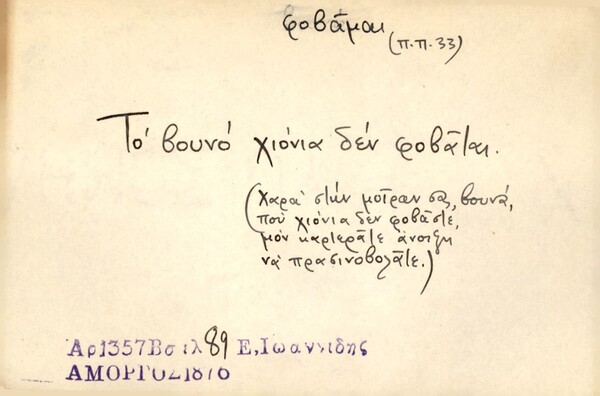 φοβᾶμαι
(π.π. 33)
Τό βουνό χιόνια δέν φοβᾶται.
(Χαρά στήν μοῖραν σας, βουνά,
ποὺ χιόνια δὲν φοβᾶστε,
μόν καρτερᾶτε ἄνοιξη
νὰ πρασινοβολᾶτε.)
Αρ1357Βσιλ 89 Ε,Ιωαννιδης
ΑΜΟΡΓΟΣ1876